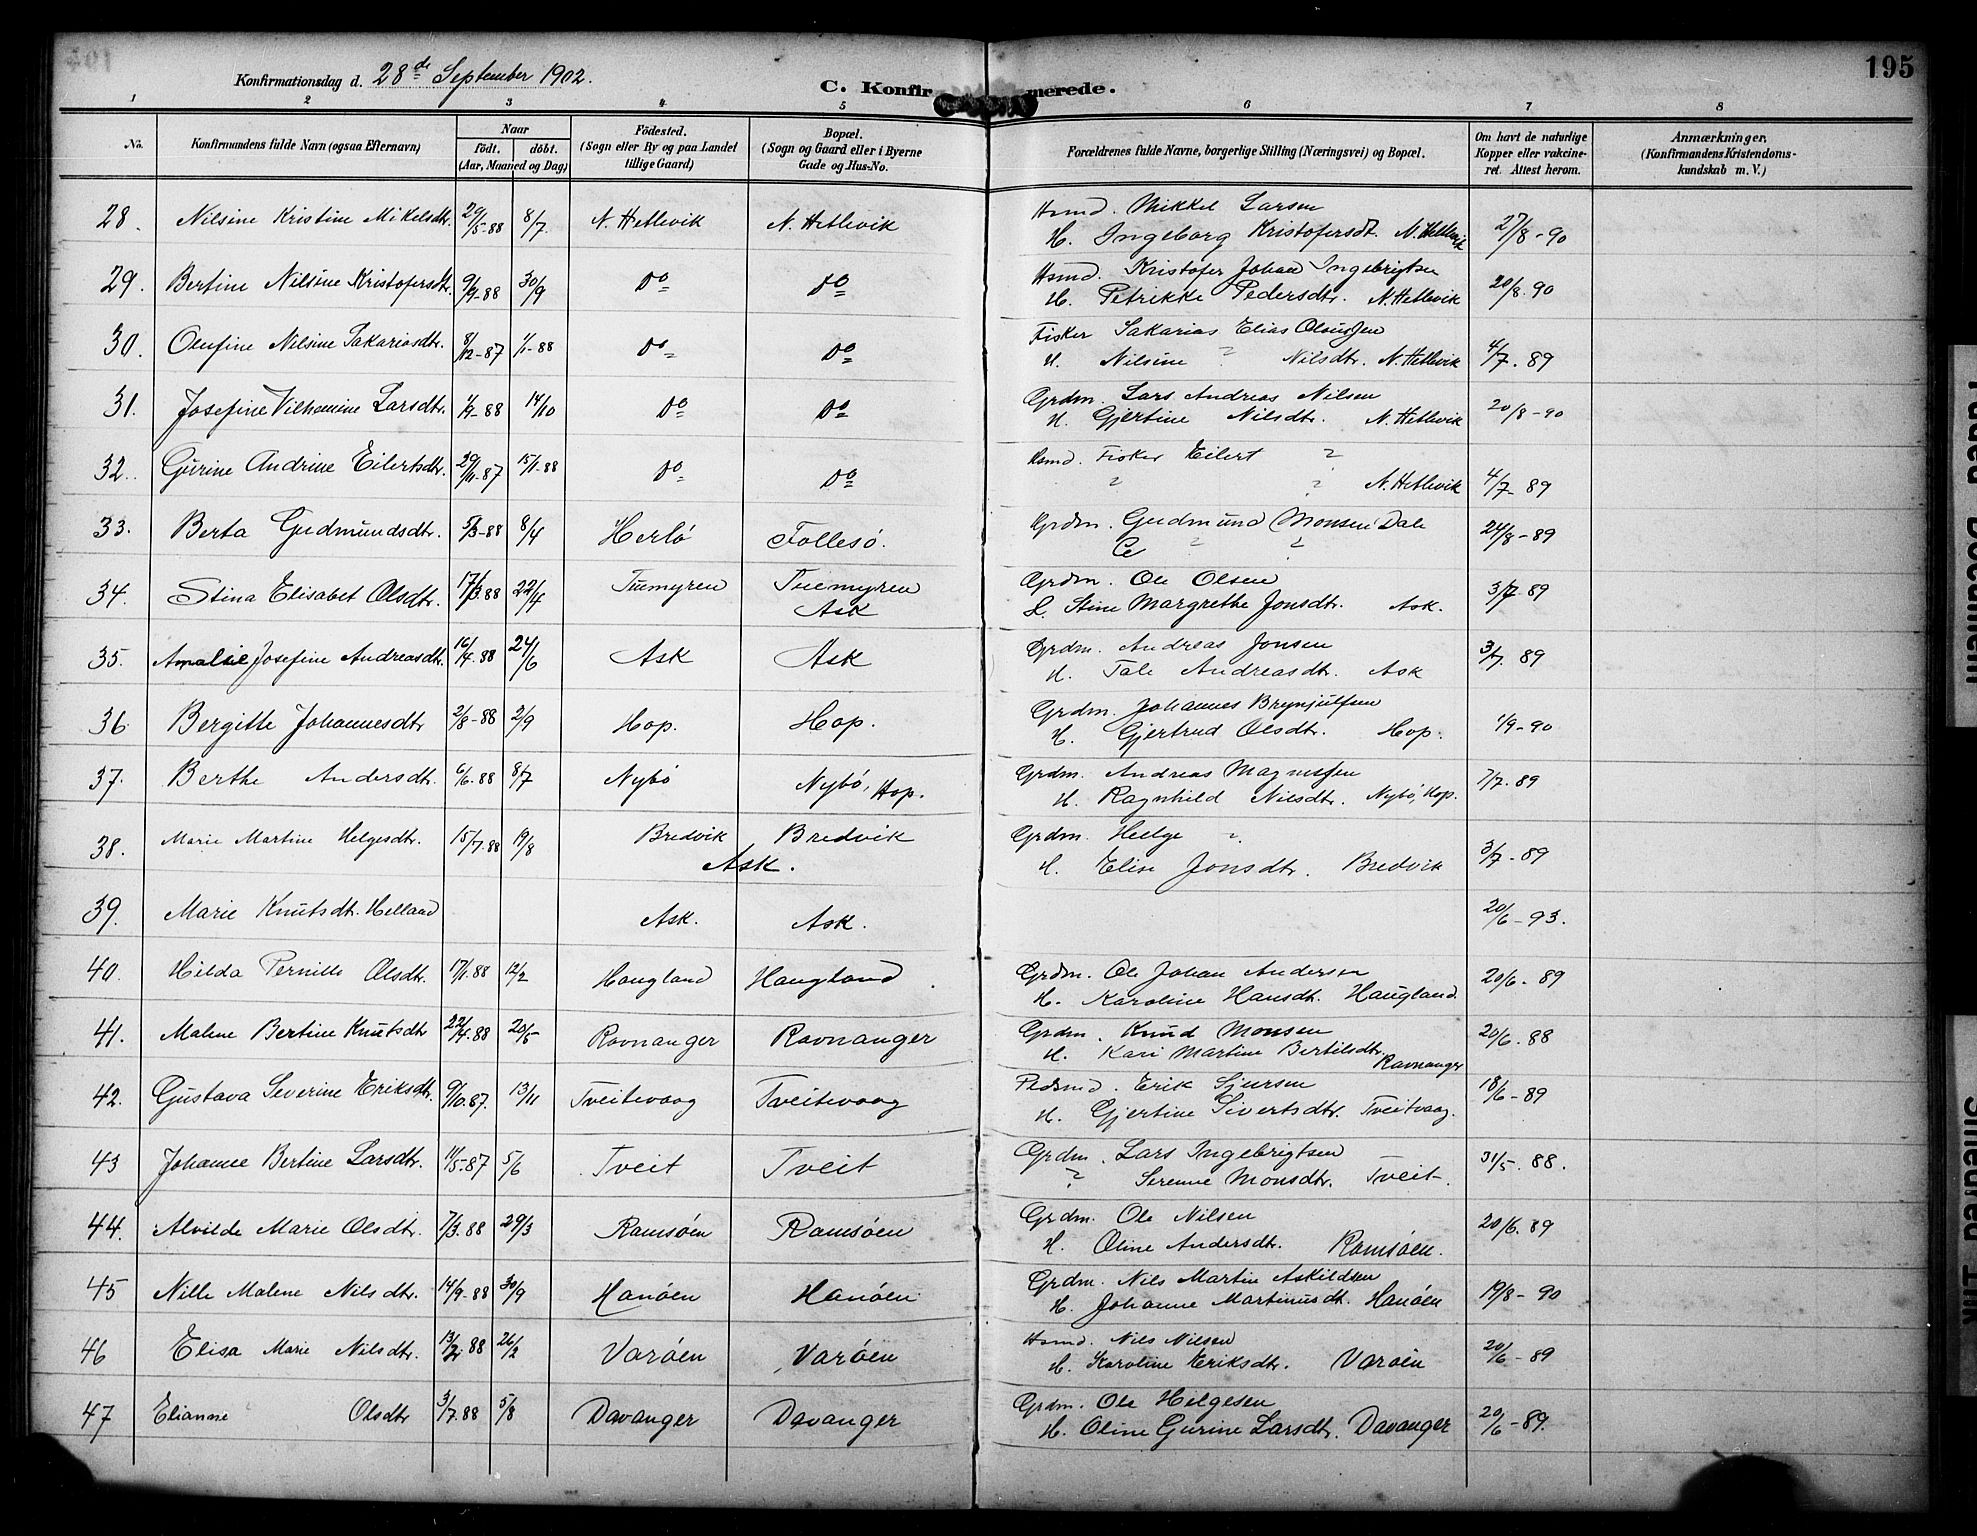 Konfirmationsdag d. 28de September 1902.
C. Konfirmerede.
195
1 2 3 4 5 6 7 8
No.
Konfirmandens fulde Navn (ogsaa Efternavn)
Naar
födt. döbt.
(Aar, Maaned og Dag)
Födested.
(Sogn eller By og paa Landet
tillige Gaard)
Bopæl.
(Sogn og Gaard eller i Byerne
Gade og Hus-No.
Forældrenes fulde Navne, borgerlige Stilling (Næringsvei) og Bopæl.
Om havt de naturlige
Kopper eller vakcine-
ret. Attest herom.
Anmærkninger.
(Konfirmandens Kristendoms-
kundskab m. V.)
28. Nilsine Kristine Mikelsdtr. 29/5-88 8/7. N. Hetlevik N. Hetlevik Hsmd. Mikkel Larsen
H. Ingeborg Kristofersdt. N. Hetlevik 27/8-90
29. Bertine Nilsine Kristofersdtr. 9/9-88 30/9 Do Do Hsmd. Kristofer Johan Ingebrigtsen
H. Petrikke Pedersdtr. N. Hetlevik 20/8.90
30. Olufine Nilsine Sakariasdtr. 8/12-87 1/1-88 Do Do Fisker Sakarias Elias Olaussen
H. Nilsine ? Nilsdtr. N. Hetlevik 4/7.89
31. Josefine Vilhamine Larsdtr. 1/9-88 14/10 Do Do Grdm. Lars Andreas Nilsen
H. Gjertine Nilsdtr. N. Hetlevik 20/8-90
32. Gurine Andrine Eilertsdtr. 29/11-87 15/1.88 Do Do Hsmd. Fisker Eilert ?
? ? N. Hetlevik 4/7-89
33. Berta Gudmundsdtr. 5/3-88 8/4 Herlö Follesö. Grdm. Gudmund Monsen Dale
? ? 24/8-89
34. Stina Elisabet Olsdtr. 17/3.88 22/4 Tuemyren Tuemyren
Ask Grdm. Ole Olsen
Stine Margrethe Jonsdtr. Ask. 3/7.89
35. Amalie Josefine Andreasdtr. 16/4.88 24/6 Ask Ask Grdm. Andreas Jonsen
H. Tale Andreasdtr. Ask 3/7.89
36 Bergitte Johannesdtr 2/8-88 2/9 Hop. Hop. Grdm. Johannes Brynjulfsen
H. Gjertrud Olsdtr. Hop. 1/9-90
37. Berthe Andersdtr. 6/6.88 8/7 Nybö Nybö, Hop. Grdm. Andreas Magnussen
H. Ragnhild Nilsdtr. Nybö, Hop. 7/7.89
38. Marie Martine Helgesdtr. 15/7.88 19/8 Bredvik Bredvik
Ask. Grdm. Helge ?
H. Elise Jonsdtr. Bredvik 3/7-89
39. Marie Knutsdtr. Helland Ask. Ask. 20/6-93.
40. Hilda Pernille Olsdtr. 17/1.88 12/2 Haugland Haugland Grdm. Ole Johan Andersen
H. Karoline Hansdt. Haugland 20/6-89
41. Malene Bertine Knutsdtr 22/4.88 20/5 Ravnanger Ravnanger Grdm. Knud Monsen
H. Kari Martine Bertilsdtr. Ravnanger 20/6.88
42. Gustava Severine Eriksdtr. 9/10.87. 13/11 Tveitevaag Tveitevaag Pldsmd. Erik Sjursen
H. Gjertine Sivertsdtr. Tveitvaag. 18/6-89
43 Johanne Bertine Larsdtr. 11/5-87 5/6 Tveit Tveit Grdm. Lars Ingebrigtsen
? Serenne Monsdtr. Tveit. 31/5.88.
44. Alvilde Marie Olsdtr. 7/3.88 29/3 Ramsöen Ramsöen Grdm. Ole Nilsen
H. Oline Andersdtr. Ramsöen. 20/6.89
45 Nille Malene Nilsdtr. 14/9-88 30/9 Hanöen Hanöen Grdm. Nils Martin Askildsen
H. Johanne Martinusdt. Hanöen 19/8-90
46 Elisa Marie Nilsdtr. 13/2.88 26/2 Varöen Varöen Hsmd. Nils Nilsen
H. Karoline Eriksdtr. Varöen 20/6-89
47 Elianne Olsdtr 3/7.88 5/8 Davanger Davanger Grdm. Ole Helgesen
H. Oline Gurine Larsdtr. Davanger 20/6-89.